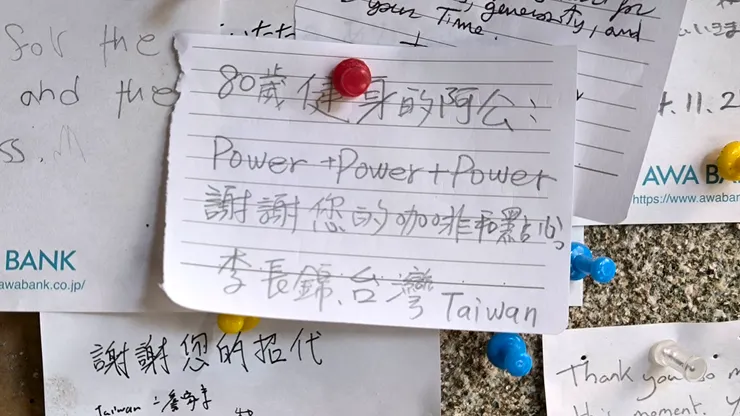 for the
and the
ss.
BANK
awabank.co.jp/
your Time.
generosity, and
for
80歲健身的阿公:
Power +Power+Power
謝謝您的咖啡和點心
李長錦.台灣 Taiwan
AWA BA
https://www.awabank
謝謝您的招代
Taiwan
Thank you so m
this moment. Y